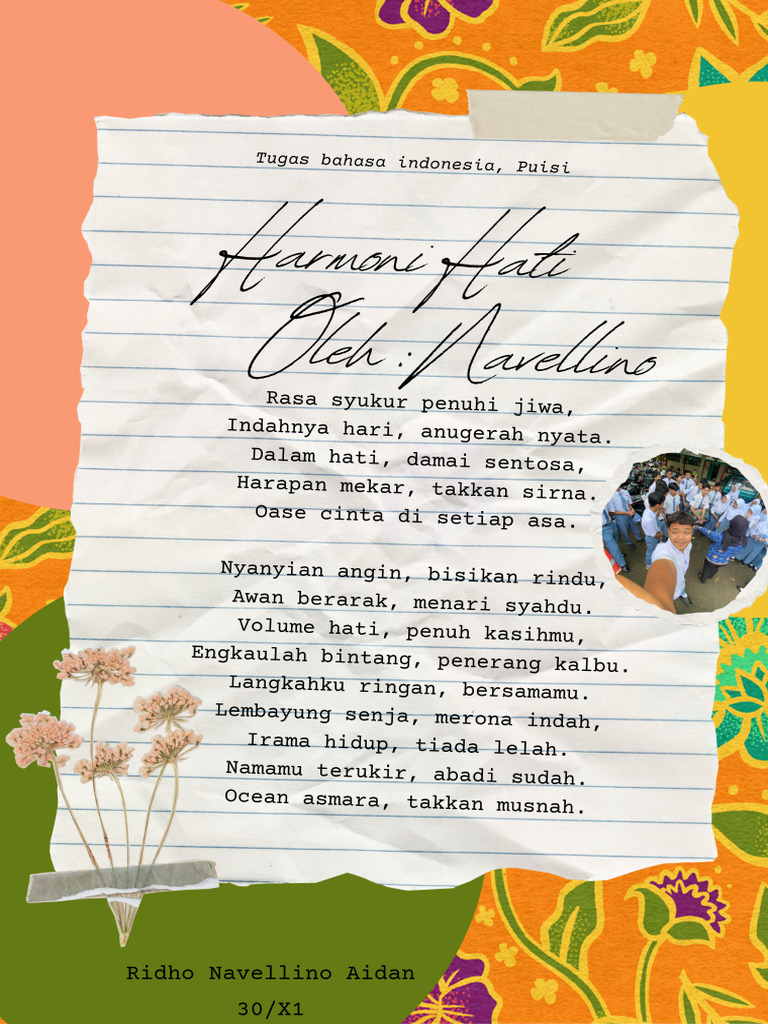 Tugas bahasa indonesia, Puisi
Harmoni Hati
Oleh : Navellino
Rasa syukur penuhi jiwa,
Indahnya hari, anugerah nyata.
Dalam hati, damai sentosa,
Harapan mekar, takkan sirna.
Oase cinta di setiap asa.
Nyanyian angin, bisikan rindu,
Awan berarak, menari syahdu.
Volume hati, penuh kasihmu,
Engkaulah bintang, penerang kalbu.
Langkahku ringan, bersamamu.
Lembayung senja, merona indah,
Irama hidup, tiada lelah.
Namamu terukir, abadi sudah.
Ocean asmara, takkan musnah.
Ridho Navellino Aidan
30/X1